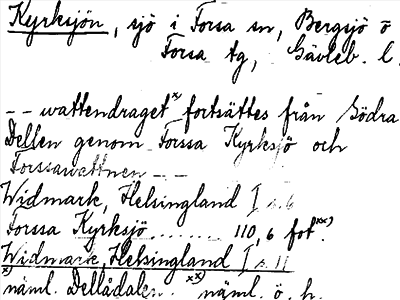 Kyrksjön, sjö i Forsa sn, Bergsjö ö
Forsa tg, Gävleb. l.
-- wattendraget x) fortsättes från Södra
Dellen genom Forssa Kyrksjö och
Forssawattnen --
Widmark, Helsingland I s. 6
Forssa Kyrksjö ....... 110,6 fot. xx)
Widmark, Helsingland I s. 11
x) näml. Dellådalen. xx) näml. ö. h.